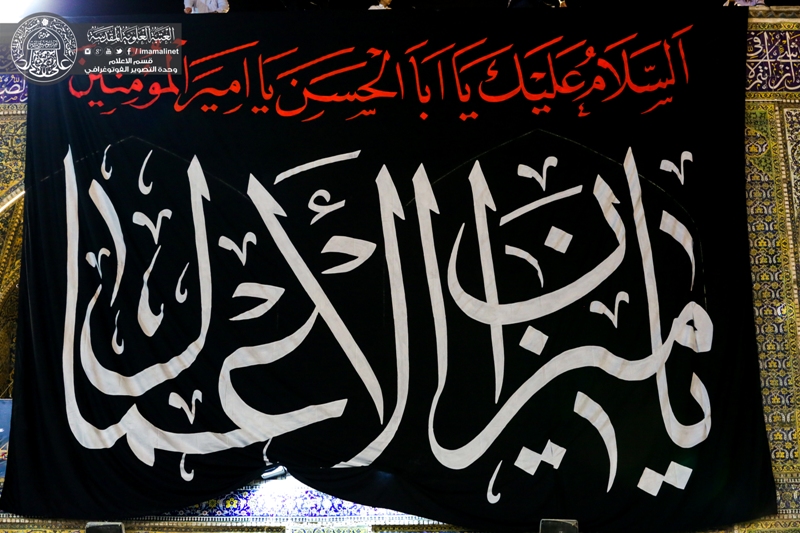 العتبة العلوية المقدسة
imamalinet
قسم الاعلام
وحدة التصوير الفوتوغرافي
اَلسَّلَامُ عَلَيْكَ يَا اَبَا الْحَسَنِ يَا اَمِيرَ الْمُؤْمِنِينَ
يا ميزان الأعمال